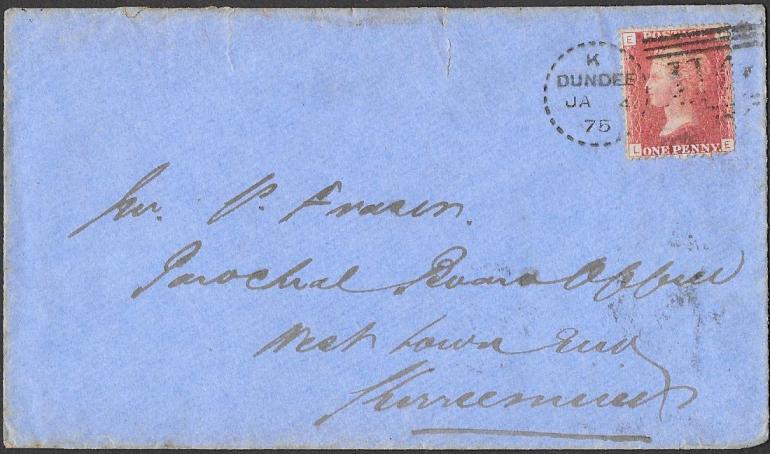 K
DUNDEE
JA 4
75
E
POSTA
L ONE PENNY. E
P. Fraser.
Parochial Board Office
West Town End
Kirriemuir